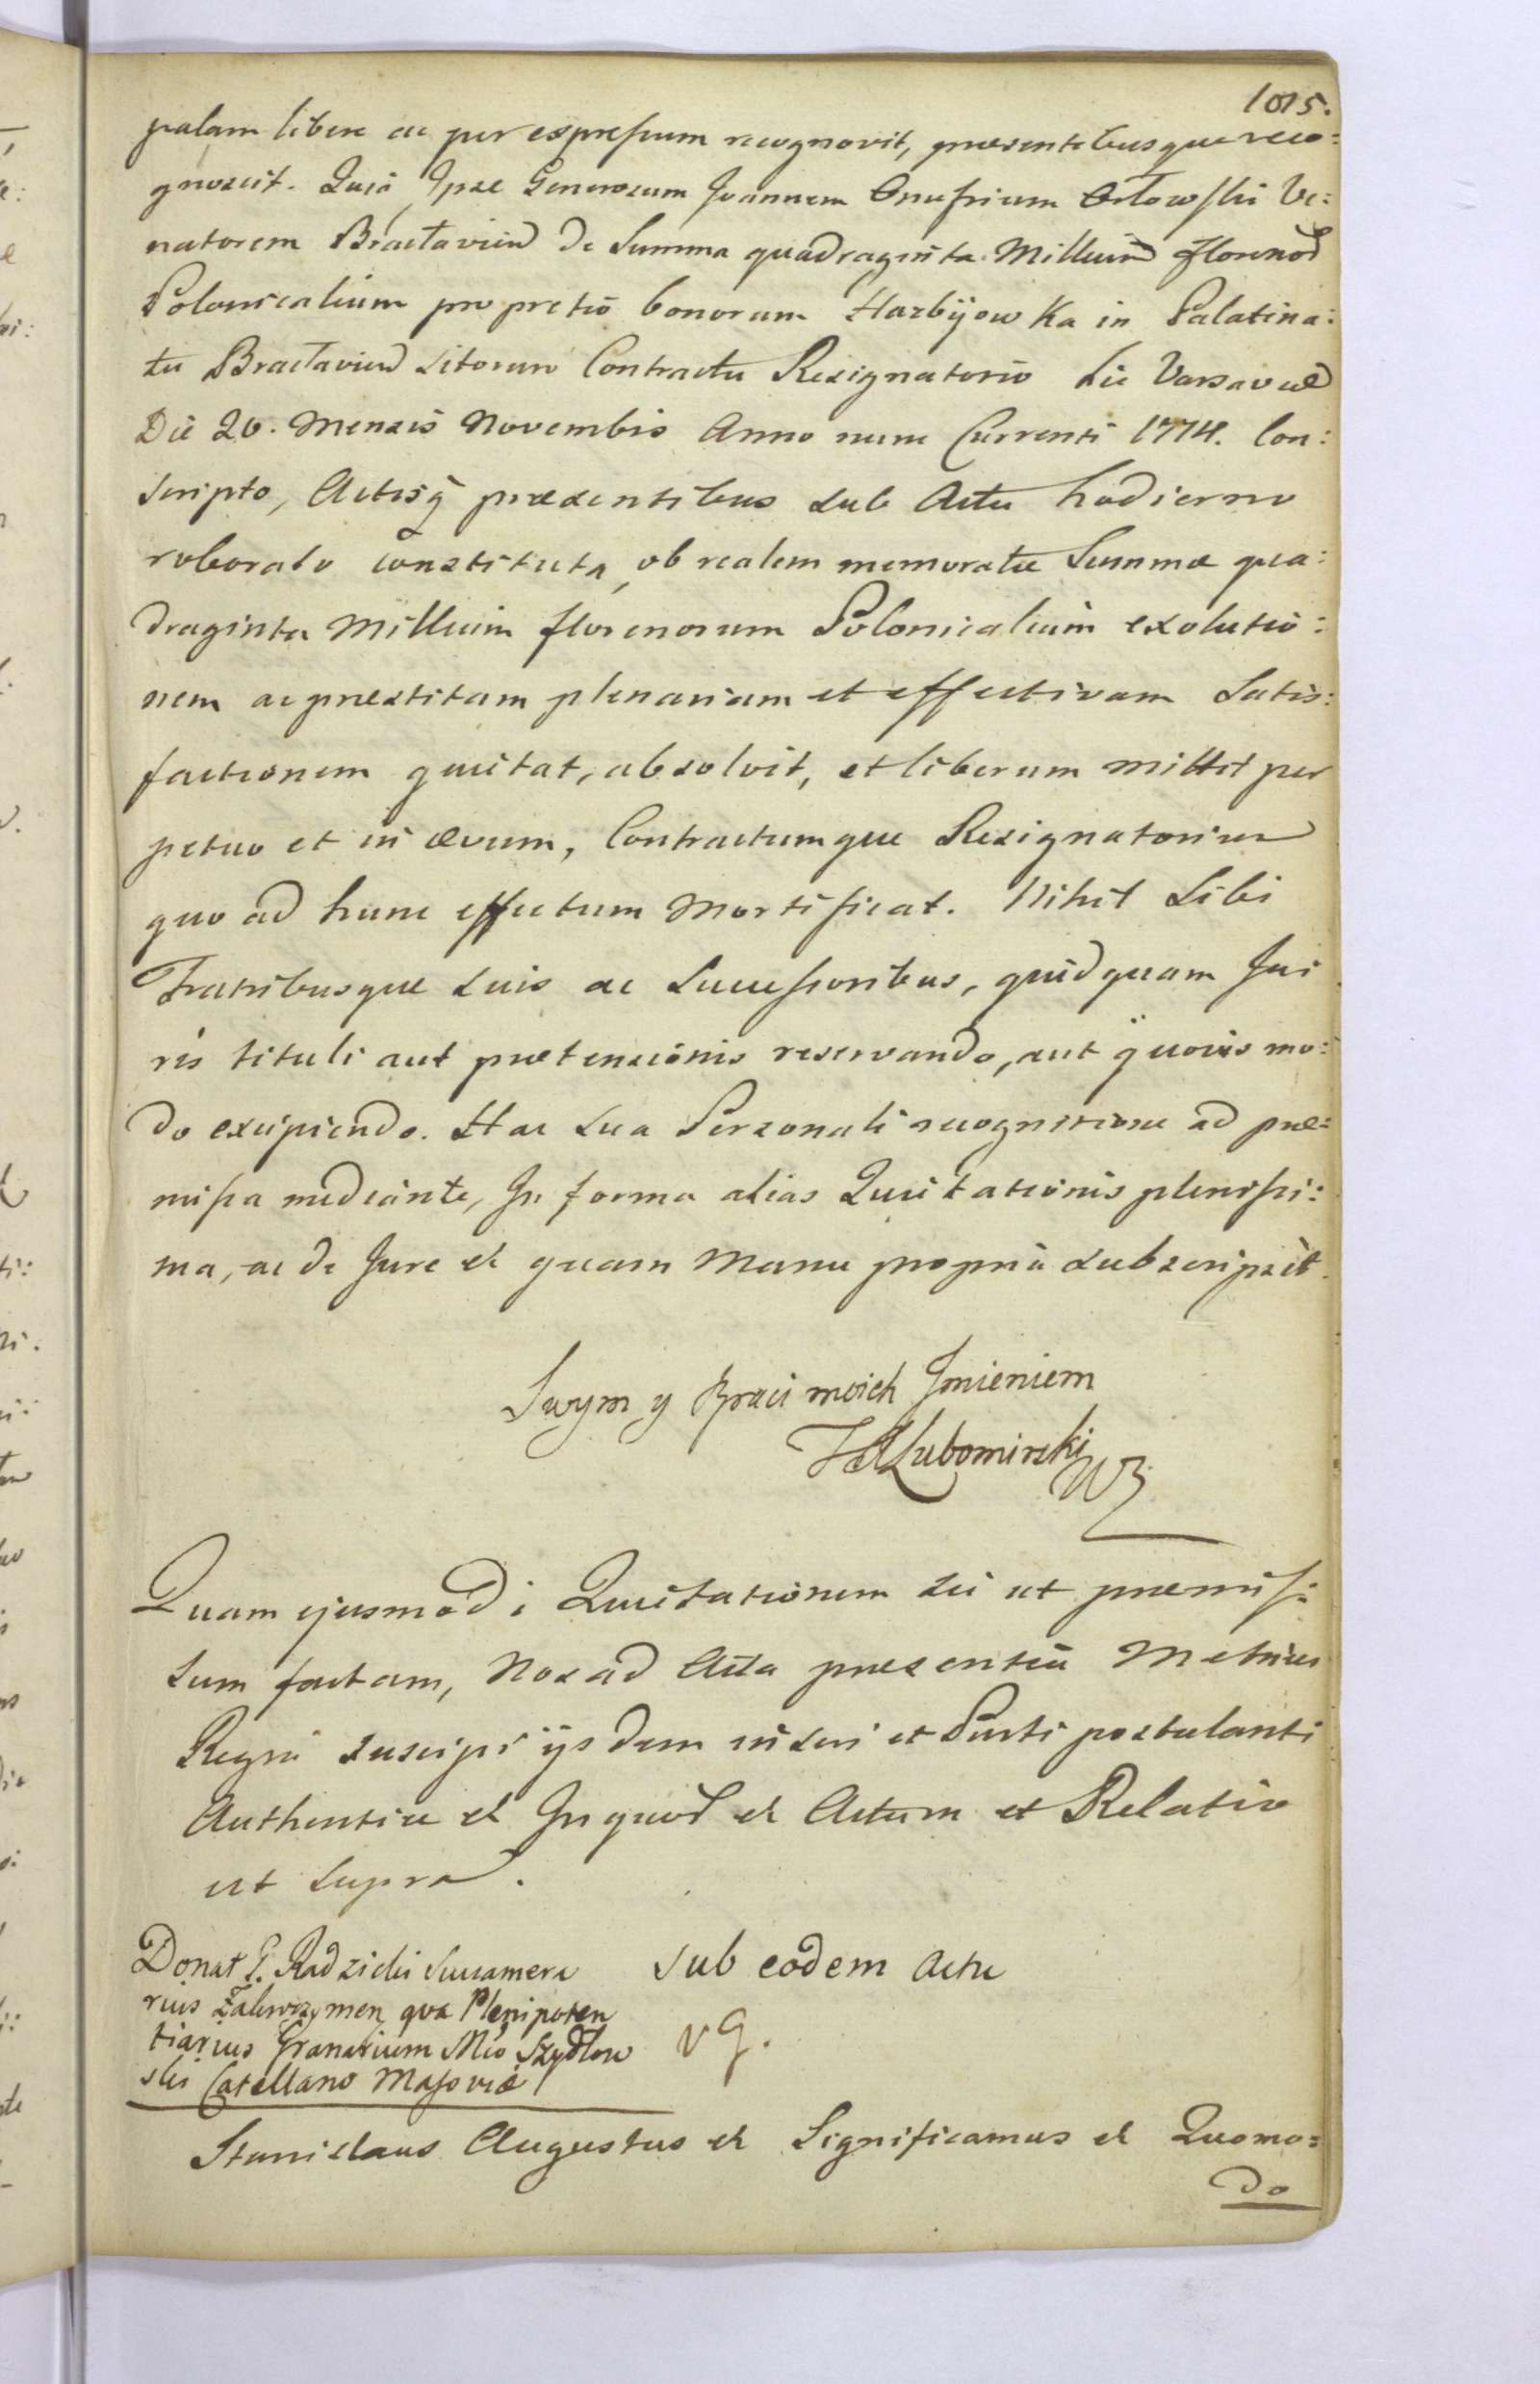 1015.
palam libere ac per expressum recognovit, praesentibusque reco:
gnoscit. Quia Ipse Generosum Joannem Onufrium Orłowski Ve:
natorem Bracłavien de Summa quadraginta Millium florenor
Polonicalium pro pretio bonorum Harbijowka in Palatina:
tu Bracłavien sitorum Contractu Resignatorio hic Varsaviae
Die 26. Mensis Novembris Anno nunc Currenti 1774. Con:
scripto, Actisq praesentibus sub Actu hodierno
roborato constituta, ob realem memoratae Summae qua:
draginta Millium florenorum Polonicalium exolutio:
nem ac praestitam plenariam et effectivam Satis:
factionem quietat, absolvit, et liberum mittit per
petuo et in aevum, Contractumque Resignatorium
quo ad hunc effectum Mortificat. Nihil Sibi
Fratribusque suis ac Successoribus, quidquam Ju
ris tituli aut praetensionis reservando, aut quovis mo:
do excipiendo. Hac sua Personali recognitione ad prae:
missa mediante, In forma alias Quietationis plenissi:
ma, ac de Jure et quam Manu propria subscripsit.
Swym y Braci moich Jmieniem
Lubomirski
Quam ejusmodi Quietationem sic ut praemis:
sum factam, Nos ad Acta praesentia Metrices
Regni suscipi ijsdem inseri et Parti postulanti
Authentice et In quor et Actum et Relatio
ut supra.
Donat P. Radzicki Succamera
rius Zakroczymen qva Plenipoten
tiarius Granarium Mco Szydłow
ski Castellano Masoviae
sub eodem Actu
Stanislaus Augustus et Significamus et Quomo:
do